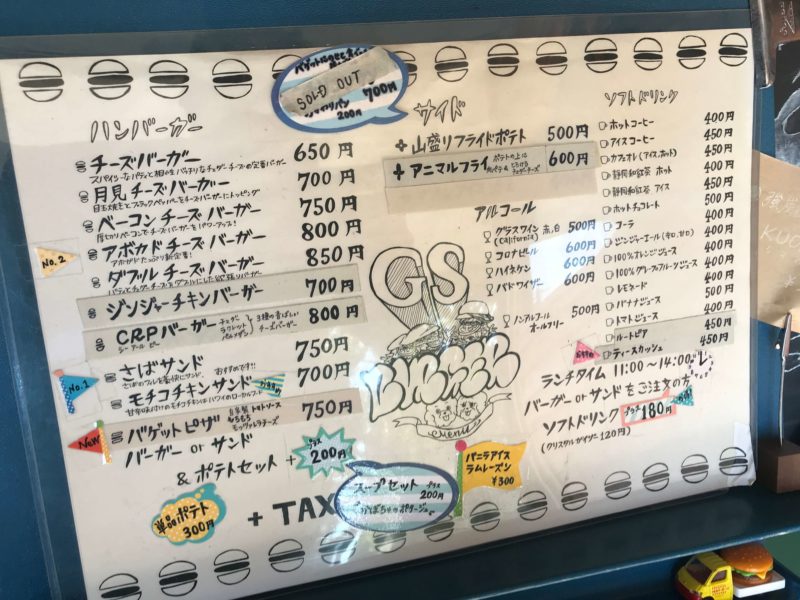 SOLD OUT
700円
200円
ハンバーガー
チーズバーガー 650円
月見チーズバーガー 700円
ベーコンチーズバーガー 750円
アボカドチーズバーガー 800円
No.2
ダブルチーズバーガー 850円
ジンジャーチキンバーガー 700円
CRPバーガー 800円
シーアールピー
チェダー
ラクレット
パルメザン
3種の香ばしい
チーズバーガー
さばサンド 750円
おすすめです!!
No.1
モチコチキンサンド 700円
NEW
バゲットピザ 750円
自家製トマトソース
もちもち
モッツァレラチーズ
バーガー or サンド
& ポテトセット
+ プラス 200円
単品ポテト
300円
+ TAX
スープセット プラス 200円
かぼちゃのポタージュ
サイド
+ 山盛りフライドポテト 500円
+ アニマルフライ 600円
ポテトの上に
アルコール
グラスワイン 赤,白 500円
(California)
コロナビール 600円
ハイネケン 600円
バドワイザー 600円
ノンアルコール 500円
オールフリー
GS
BURGER
menu
バニラアイス
ラムレーズン
¥300
ソフトドリンク
ホットコーヒー 400円
アイスコーヒー 450円
カフェオレ(アイス,ホット) 450円
静岡和紅茶 ホット 400円
静岡和紅茶 アイス 450円
ホットチョコレート 500円
コーラ 400円
ジンジャーエール(辛口,甘口) 400円
100%オレンジジュース 400円
100%グレープフルーツジュース 400円
レモネード 500円
バナナジュース 400円
トマトジュース 400円
ルートビア 450円
ティースカッシュ 450円
ランチタイム 11:00〜14:00
バーガー or サンドをご注文の方
ソフトドリンク プラス 180円
(クリスタルガイザー 120円)